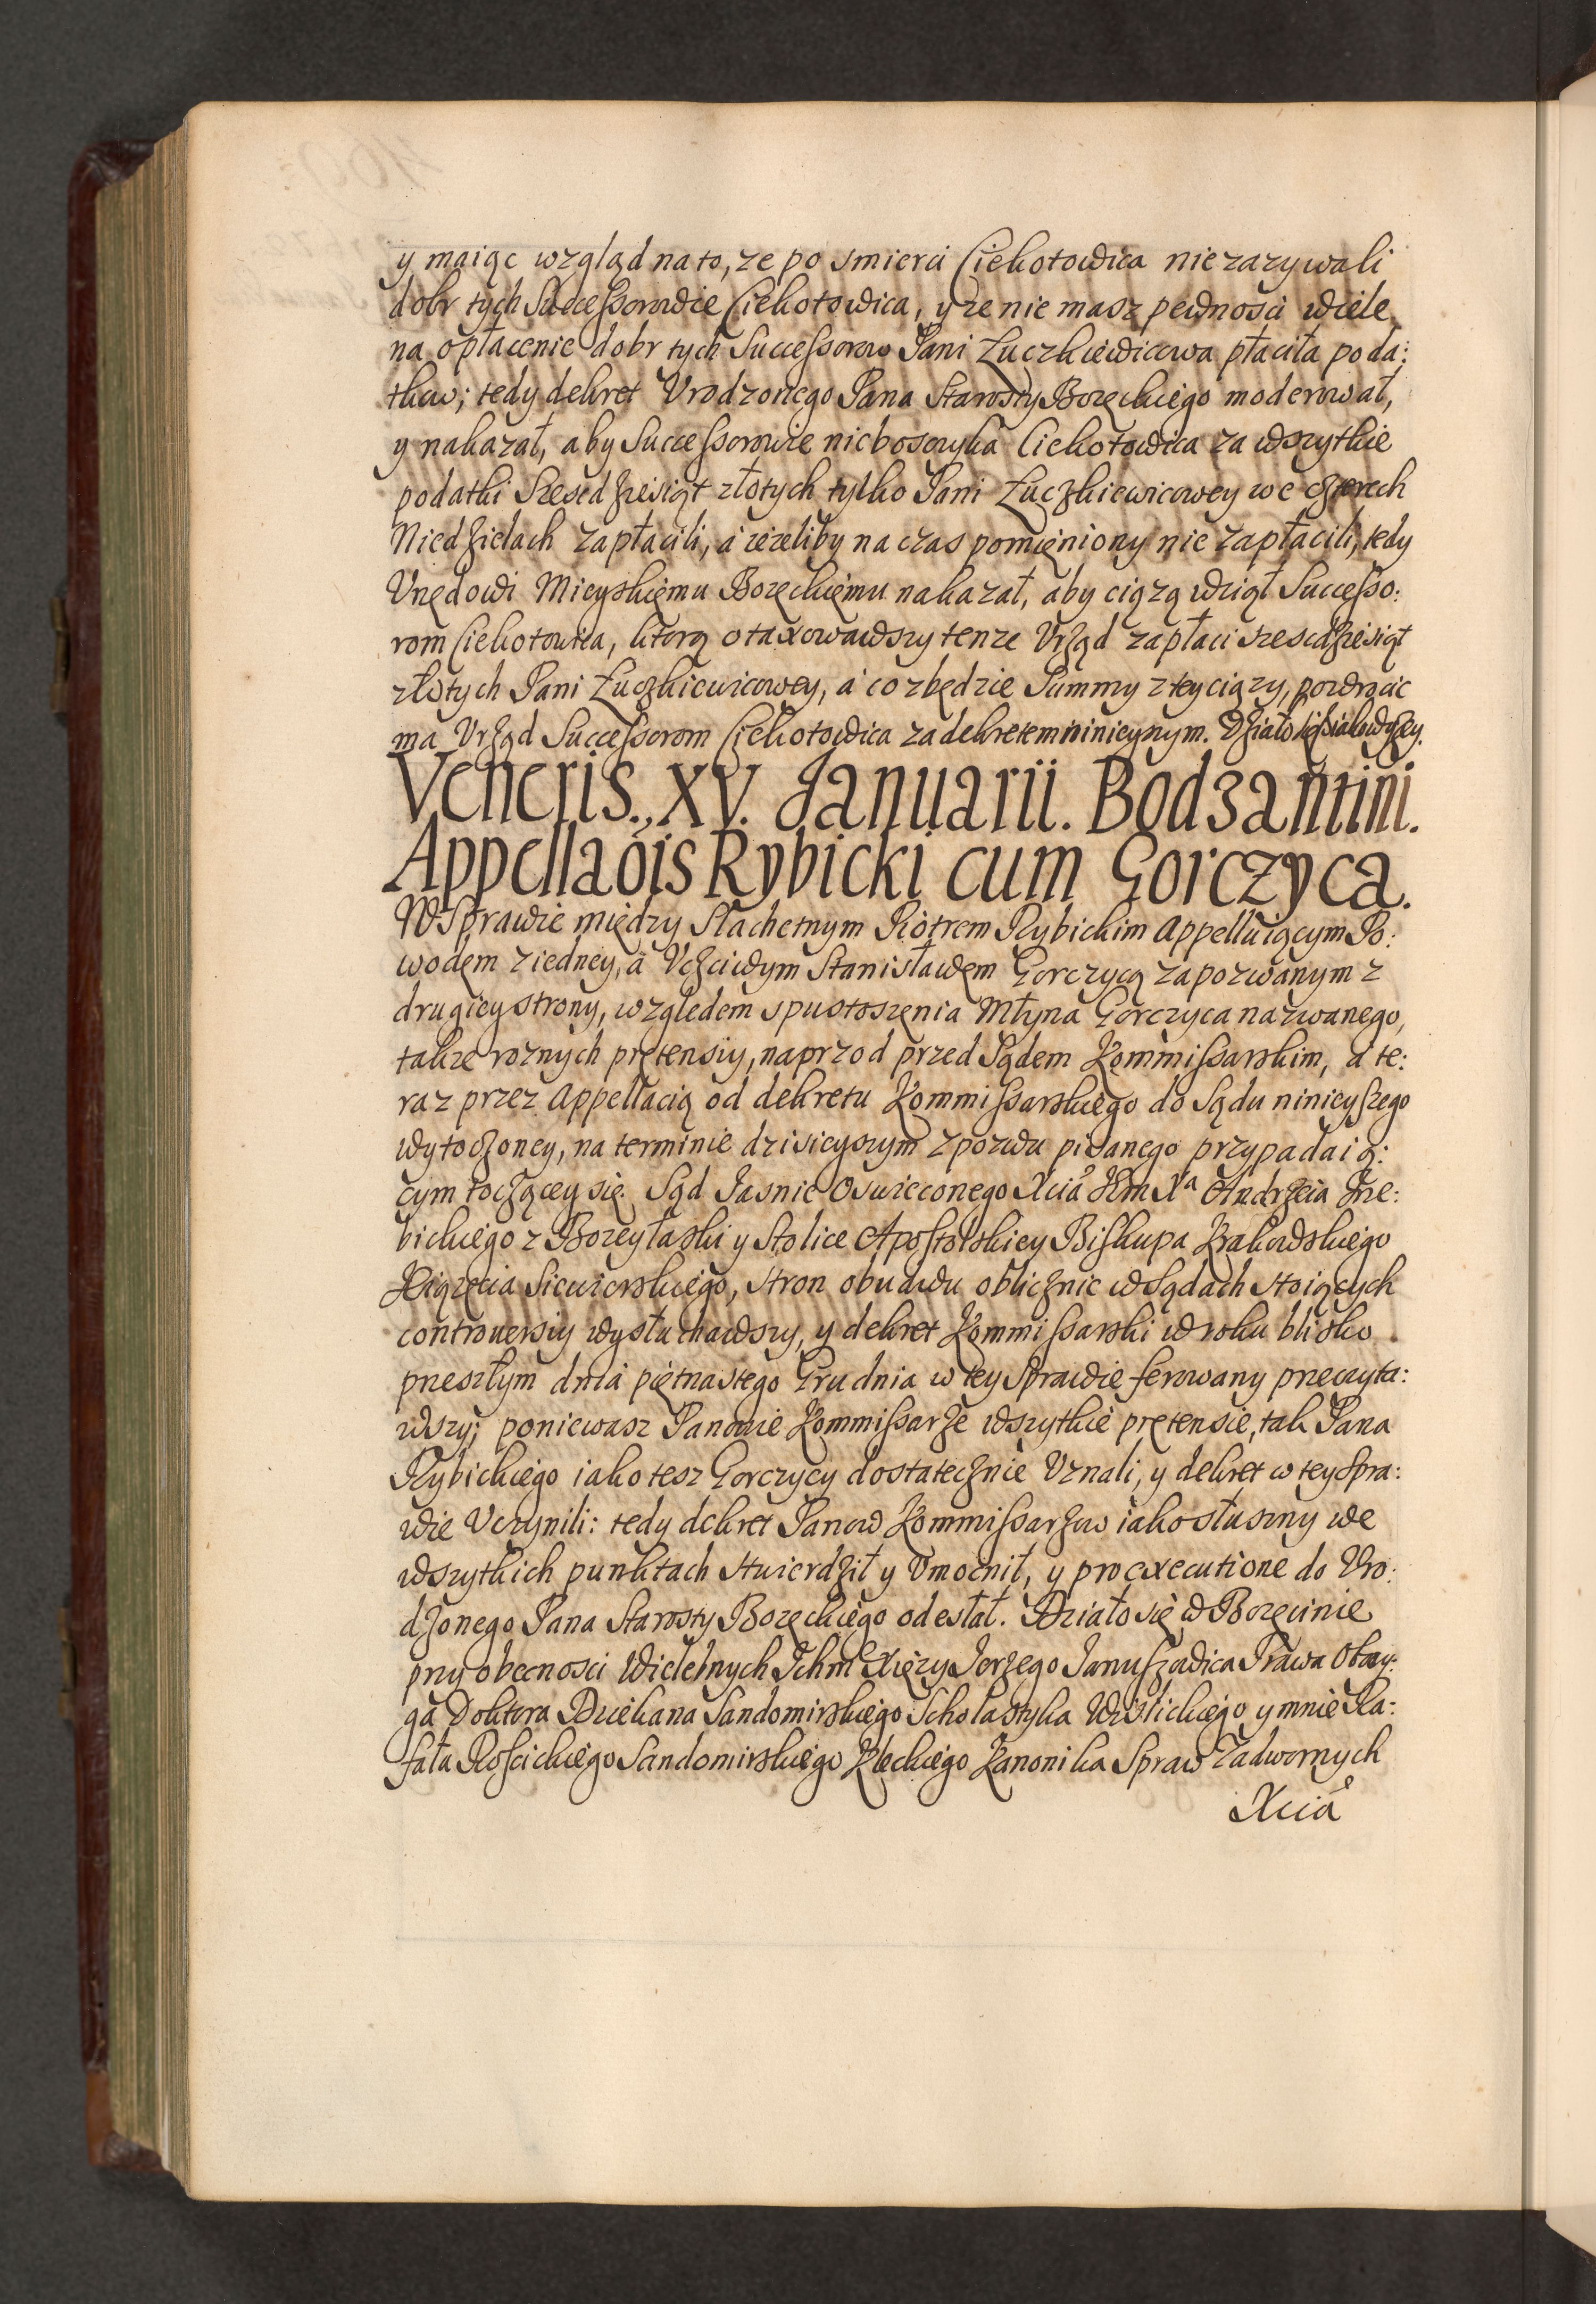 y maiąc wzgląd na to, ze po smierci Ciekotowica nie zazywali
dobr tych Successorowie Ciekotowica, y ze nie masz pewnosci wiele
na opłacenie dobr tych Successorow Pani Zuczkiewicowa płaciła poda:
tkow; tedy dekret Vrodzonego Pana Starosty Bozęckiego moderował,
y nakazał, aby Successorowie nieboszczyka Ciekotowica za wszytkie
podatki Szescdziesiąt złotych tylko Pani Zuczkiewicowey we czterech
Niedzielach zapłacili, á iezeliby na czas pomięniony nie zapłacili, tedy
Vrzędowi Mieyskięmu Bozęckięmu nakazał, aby ciązą wziął Successo:
rom Ciekotowica, ktorą otaxowawszy tenze Vrząd zapłaci szescdziesiąt
złotych Pani Zuczkiewicowey, á co zbędzie Summy z tey ciązy, powrocic
ma Vrząd Successorom Ciekotowica za dekretem ninieyszym. Działo się iako wyzey.
Veneris., XV. Januarii. Bodzantini.
Appellaõis Rybicki cum Gorczyca.
W Sprawie między Slachetnym Piotrem Rybickim Appelluiącym Po:
wodem z iedney, á Vczciwym Stanisławem Gorczycą zapozwanym z
drugiey strony, względem spustoszęnia Młyna Gorczyca nazwanego,
takze roznych prętensiy, naprzod przed Sądem Kommissarskim, á te:
raz przez Appellacią od dekretu Kommissarskiego do Sądu ninieyszego
wytoczoney, na terminie dzisieyszym z pozwu pisanego przypadaią:
cym toczącey się. Sąd Jasnie Oswieconego Xciá Jm Xa Andrzeia Trze:
bickiego z Bozey łaski y Stolice Apostolskiey Biskupa Krakowskiego
Xiązęcia Siewierskiego, stron obudwu oblicznie w Sądach stoiących
controuersiy wysłuchawszy, y dekret Kommissarski w roku blisko
przeszłym dnia piętnastego Grudnia w tey Sprawie ferowany przeczyta:
wszy; poniewasz Panowie Kommissarze wszytkie prętensie, tak Pana
Rybickiego iako tesz Gorczycy dostatecznie Vznali, y dekret w tey Spra:
wie Vczynili: tedy dekret Panow Kommissarzow iako słuszny we
wszytkich punktach stwierdził y Vmocnił, y pro executione do Vro:
dzonego Pana Starosty Bozęckiego odesłał. Działo się w Bozęcinie
przy obecnosci Wielebnych Ichm Xięzy Jerzego Januszowica Prawa Oboy:
ga Doktora Dziekana Sandomirskiego Scholastyka Wislickiego y mnie Ra:
fała Roscickiego Sandomirskiego Kleckiego Kanonika Spraw Zadwornych
Xciá